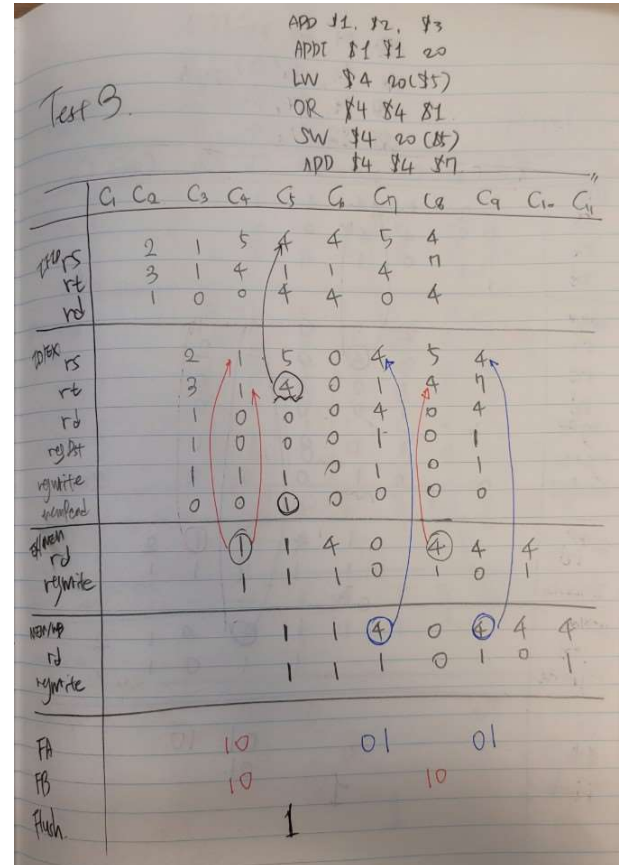 ADD $1, $2, $3
ADDI $1 $1 20
LW $4 20($5)
Test 3.
OR $4 $4 $1
SW $4 20($5)
ADD $4 $4 $7
C1 C2 C3 C4 C5 C6 C7 C8 C9 C10 C11
IF/ID rs 2 1 5 4 4 5 4
rt 3 1 4 1 1 4 7
rd 1 0 0 4 4 0 4
ID/EX rs 2 1 5 0 4 5 4
rt 3 1 4 0 1 4 7
rd 1 0 0 0 4 0 4
regDst 1 0 0 0 1 0 1
regwrite 1 1 1 0 1 0 1
memread 0 0 1 0 0 0 0
EX/MEM
rd 1 1 4 0 4 4 4
regwrite 1 1 1 0 1 0 1
MEM/WB 1 1 4 0 4 4 4
rd 1 1 1 0 1 0 1
regwrite
FA 10 01 01
FB 10 10
Flush. 1